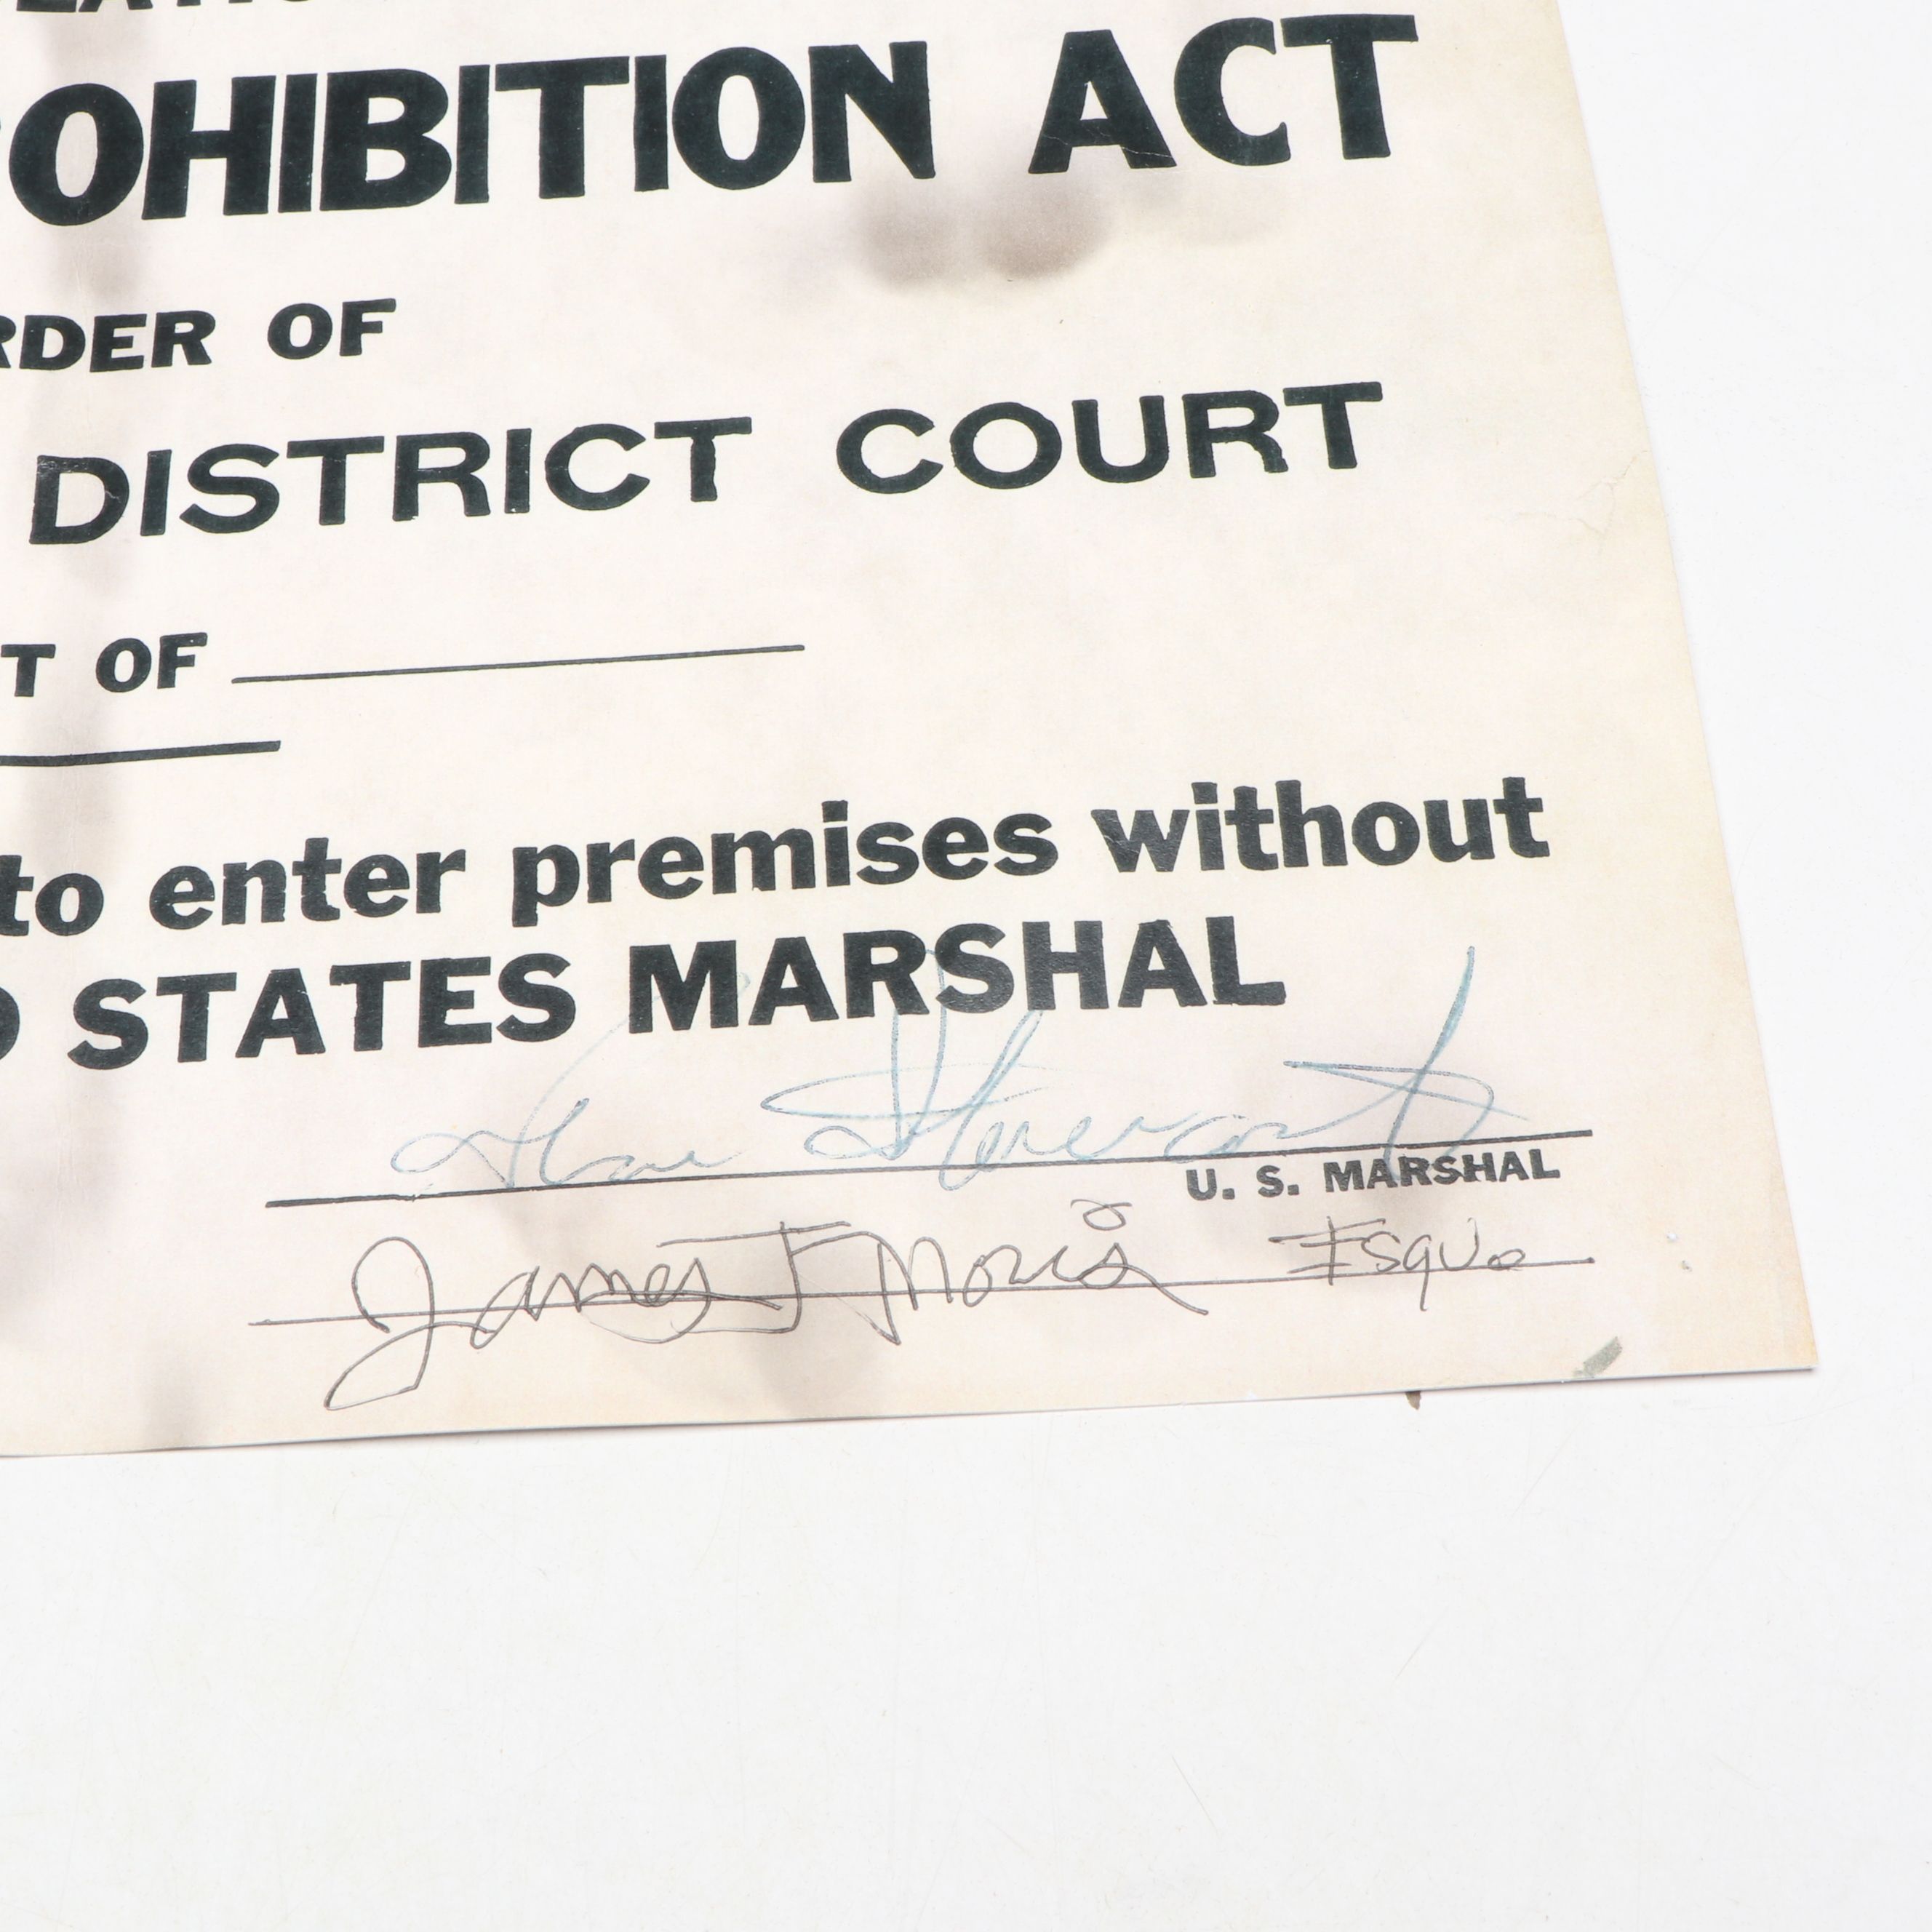 OHIBITION ACT
RDER OF
DISTRICT COURT
T OF
to enter premises without
D STATES MARSHAL
U. S. MARSHAL
James F Moris Esque